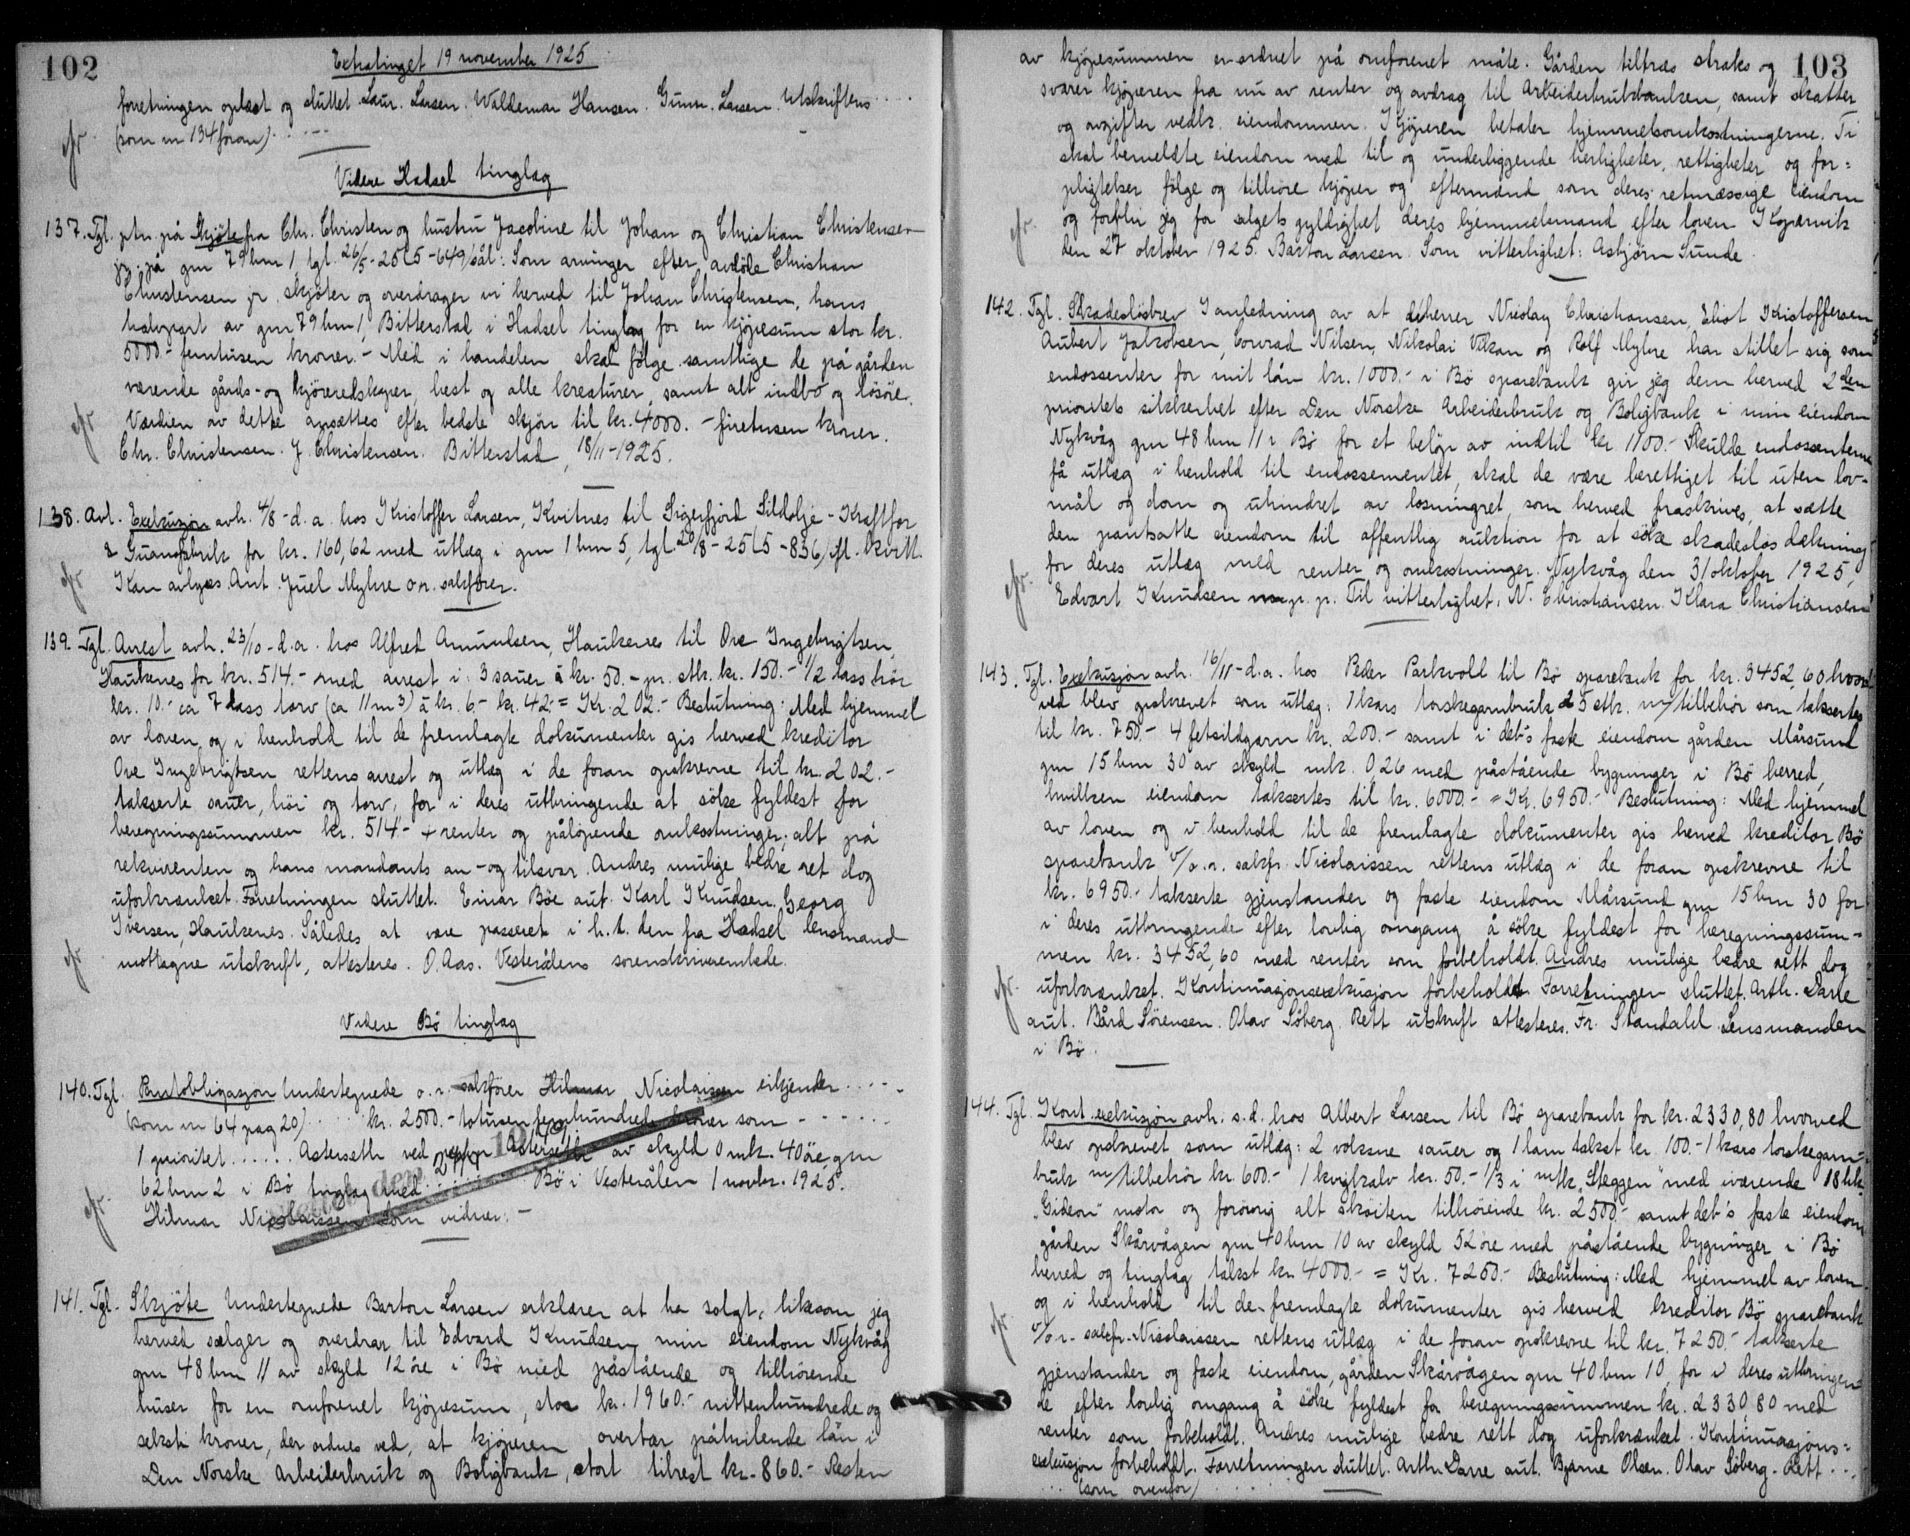 102
Extratinget 19 november 1925
forretningen oplæst og sluttet. Laur. Larsen. Waldemar Hansen. Gunn. Larsen. Utskriftens ....
(som nr 134 foran) .....
Videre Hadsel tinglag
137. Tgl. ptn. på Skjöte fra Chr. Christen og hustru Jacobine til Johan og Christian Christensen
jr. på gnr 79 bnr 1, tgl. 26/5-25 (5-649) sål: Som arvinger efter avdöde Christian
Christensen jr. skjöter og overdrager vi herved til Johan Christensen, hans
halvpart av gnr 79 bnr 1, Bitterstad i Hadsel tinglag for en kjöpesum stor kr.
5000.- femtusen kroner. - Med i handelen skal fölge samtlige de på gården
værende gårds- og kjöreredskaper, hest og alle kreaturer, samt alt indbo og lösöre.
Værdien av dette ansættes efter bedste skjön til kr. 4000. - firetusen kroner.
Chr. Christensen. J. Christensen. Bitterstad, 18/11-1925.
138. Avl. Exekusjon avh. 4/8-d.a. hos Kristoffer Larsen, Kvitnes til Sigerfjord Sildolje- Kraftfor
& Guanofabrik for kr. 160,62 med utlæg i gnr 1 bnr 5, tgl. 20/8-25 (5-836) ifl. kvitt.
Kan avlyses Aut. Juel Myhre o.r. sakförer.
139. Tgl. Arrest avh. 23/10-d.a. hos Alfred Amundsen, Haukenes til Ove Ingebrigtsen,
Haukenes for kr. 514.- med arrest i: 3 sauer à kr. 50.- pr. stk. kr. 150.- 1/2 lass höi
kr. 10.- ca 7 lass torv (ca 11 m3) à kr. 6.- kr. 42.- = Kr. 202.- Beslutning: Med hjemmel
av loven og i henhold til de fremlagte dokumenter gis herved kreditor
Ove Ingebrigtsen rettens arrest og utlæg i de foran opskrevne til kr. 202.-
takserte sauer, höi og torv, for i deres utbringende at söke fyldest for
beregningssummen kr. 514.- + renter og pålöpende omkostninger, alt på
rekvirenten og hans mandants an- og tilsvar. Andres mulige bedre ret dog
uforkrænket. Forretningen sluttet. Einar Böe aut. Karl Knudsen. Georg
Iversen, Haukenes. Således at være passeret i h.t. den fra Hadsel lensmand
mottagne utskrift, attesteres. O. Aas. Vesterålens sorenskriverembede.
Videre Bö tinglag
140. Tgl. Pantobligasjon Undertegnede o.r. sakförer Hilmar Nicolaissen erkjender .....
(som nr 64 pag 20) .... kr. 2500.- totusenfemhundrede kroner som ......
1 prioritet ...... Asterseth ved av skyld 0 mrk. 40 öre, gnr
62 bnr 2 i Bö tinglag med ...... Bö i Vesterålen 1 novbr. 1925.
Hilmar Nicolaissen Som vidner: -
141. Tgl. Skjöte Undertegnede Barton Larsen erklærer at ha solgt, likesom jeg
herved sælger og overdrar til Edvard Knudsen min eiendom Nykvåg
gnr 48 bnr 11 av skyld 12 öre i Bö med påstående og tilhörende
huser for en omforenet kjöpesum, stor kr. 1960.- nittenhundredeog
seksti kroner, der ordnes ved, at kjöperen overtar påhvilende lån i
Den Norske Arbeiderbruk og Boligbank, stort tilrest kr. 860.- Resten
103
av kjöpesummen er ordnet på omforenet måte. Gården tiltræs straks og
svarer kjöperen fra nu av renter og avdrag til Arbeiderbrukbanken, samt skatter
og avgifter vedk. eiendommen. Kjöperen betaler hjemmelsomkostningerne. Ti
skal bemeldte eiendom med til og underliggende herligheter, rettigheter og for=
pligtelser fölge og tilhöre kjöper og eftermænd som deres retmæssige eiendom
og forblir jeg for salgets gyldighet deres hjemmelsmand efter loven. Kopervik
den 27 oktober 1925. Barton Larsen. Som vitterlighet: Asbjörn Sunde.
142. Tgl. Skadeslösbrev I anledning av at dherrer Nicolay Christiansen, Eliot Kristoffersen
Aubert Jakobsen, Conrad Nilsen, Nikolai Vikan og Rolf Myhre har stillet sig som
endossenter for mit lån kr. 1000.- i Bö sparebank gir jeg dem herved 2den
prioritets sikkerhet efter Den Norske Arbeiderbruk og Boligbank i min eiendom
Nykvåg gnr 48 bnr 11 i Bö for et belöp av indtil kr. 1100.- Skulde endossenterne
få utlæg i henhold til endossementet, skal de være berettiget til uten lov-
mål og dom og uhindret av lösningsret, som herved fraskrives, at sætte
den pantsatte eiendom til offentlig auktion for at söke skadeslös dækning
for deres utlæg med renter og omkostninger. Nykvåg den 31 oktober 1925.
Edvart Knudsen m.p.p. Til vitterlighet: N. Christiansen. Klara Christiansen
143. Tgl. Exekusjon avh. 16/11-d.a. hos Peder Parkvold til Bö sparebank for kr. 3452,60 hvor=
ved blev opskrevet som utlæg: 1 kars torskegarnbruk à 5 stk. m/tilbehör som taksertes
til kr. 750.- 4 fetsildgarn kr. 200.- samt i deb's faste eiendom gården Mårsund
gnr 15 bnr 30 av skyld mrk. 0,26 med påstående bygninger i Bö herred,
hvilken eiendom taksertes til kr. 6000.- = Kr. 6950.- Beslutning: Med hjemmel
av loven og i henhold til de fremlagte dokumenter gis herved kreditor Bö
sparebank v/o.r. sakfr. Nicolaissen rettens utlæg i de foran opskrevne til
kr. 6950.- takserte gjenstander og faste eiendom Mårsund gnr 15 bnr 30 for
i deres utbringende efter lovlig omgang å söke fyldest for beregningssum-
men kr. 3452,60 med renter som forbeholdt. Andres mulige bedre rett dog
uforkrænket. Kontinuasjonsexekusjon forbeholdt. Forretningen sluttet. Arth. Darre
aut. Bård Sörensen. Olav Söberg. Rett utskrift attesteres. Fr. Skandahl. Lensmanden
i Bö.
144. Tgl. Kont. exekusjon avh. s.d. hos Albert Larsen til Bö sparebank for kr. 2330,80 hvorved
blev opskrevet som utlæg: 2 voksne sauer og 1 lam takst kr. 100.- 1 kars torskegarn-
bruk m/tilbehör kr. 600.- 1 kvigkalv kr. 50.- 1/3 i mtk. "Skeggen" med iværende 18 hk.
"Gideon" motor og forövrig alt sköiten tilhörende kr. 2500.- samt deb's faste eiendom
gården Skårvågen gnr 40 bnr 10 av skyld 52 öre med påstående bygninger i Bö
herred og tinglag takst kr. 4000.- = Kr. 7250.- Beslutning: Med hjemmel av loven
og i henhold til de fremlagte dokumenter gis herved kreditor Bö sparebank
v/o.r. sakfr. Nicolaissen rettens utlæg i de foran opskrevne til kr. 7250.- takserte
gjenstander og faste eiendom, gården Skårvågen gnr 40 bnr 10, for i deres utbringen=
de efter lovlig omgang å söke fyldest for beregningssummen kr. 2330,80 med
renter som forbeholdt. Andres mulige bedre rett dog uforkrænket. Kontinuasjons=
exekusjon forbeholdt. Forretningen sluttet. Arth. Darre aut. Bjarne Olsen. Olav Söberg. Rett ...
.... (som ovenfor) .....